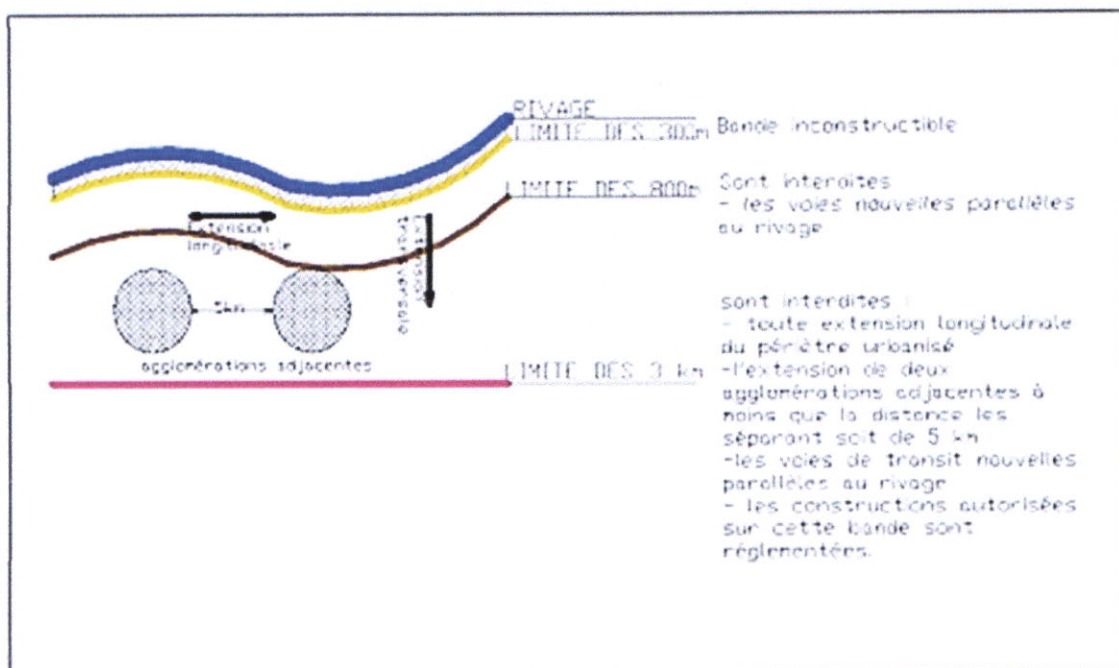 RIVAGE
LIMITE DES 300m
Bande inconstructible
LIMITE DES 800m
Sont interdites
- les voies nouvelles parallèles
au rivage
Extension
longitudinale
Extension
transversale
5km
agglomérations adjacentes
LIMITE DES 3 km
sont interdites :
- toute extension longitudinale
du périètre urbanisé
-l'extension de deux
agglomérations adjacentes à
moins que la distance les
séparant soit de 5 km
-les voies de transit nouvelles
parallèles au rivage
- les constructions autorisées
sur cette bande sont
réglementées.